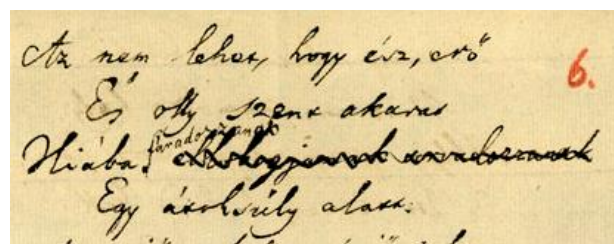 Az nem lehet, hogy ész, erő
6.
És olly szent akarat
fáradozzanak
Hiába sorvadozzanak
Egy átoksúly alatt.